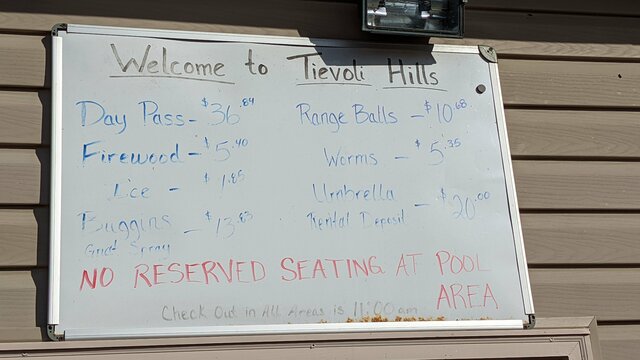 Welcome to Tievoli Hills
Day Pass - $36.84
Firewood - $5.40
Ice - $1.85
Buggins - $13.83
Gnat Spray
Range Balls - $10.68
Worms - $5.35
Umbrella
Rental Deposit - $20.00
NO RESERVED SEATING AT POOL
AREA
Check Out in All Areas is 11:00am